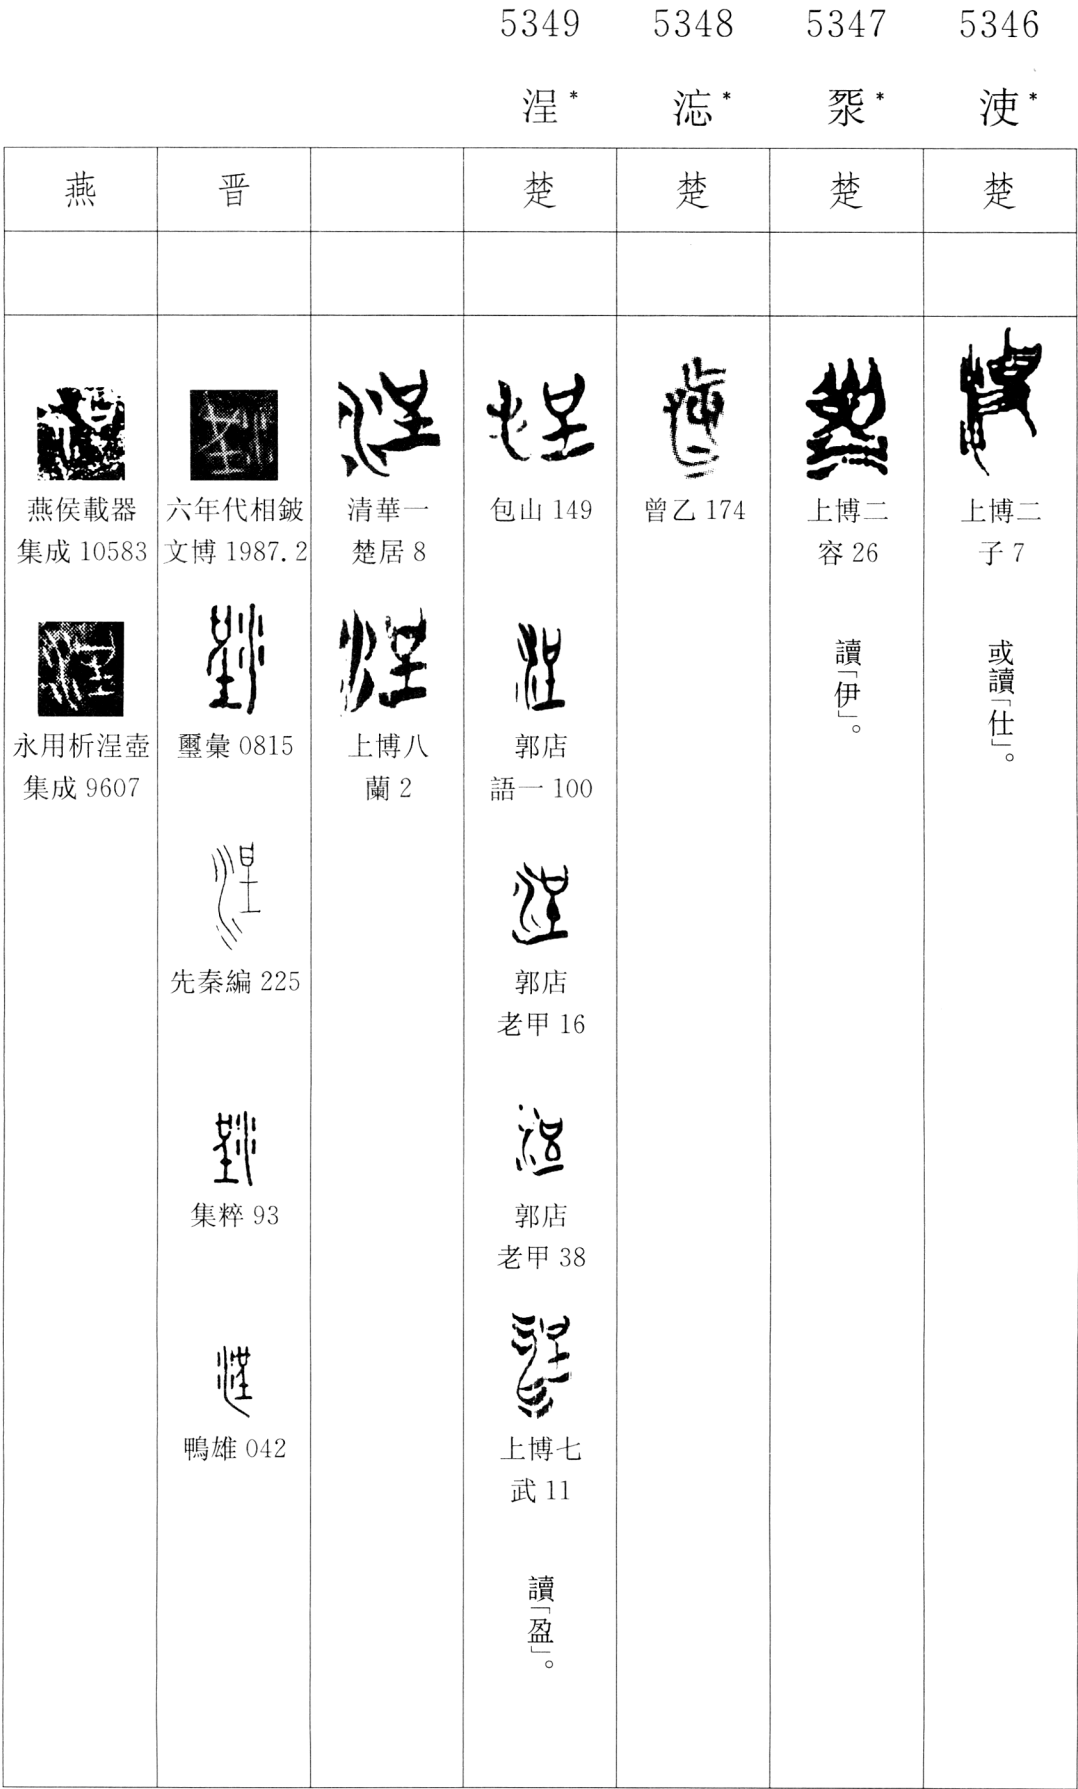 5346
浢*
楚
上博二
子 7
或讀「仕」。
5347
*
楚
上博二
容 26
讀「伊」。
5348
*
楚
曾乙 174
5349
浧*
楚
包山 149
郭店
語一 100
郭店
老甲 16
郭店
老甲 38
上博七
武 11
讀「盈」。
清華一
楚居 8
上博八
蘭 2
晋
六年代相鈹
文博 1987.2
璽彙 0815
先秦編 225
集粹 93
鴨雄 042
燕
燕侯載器
集成 10583
永用析浧壺
集成 9607